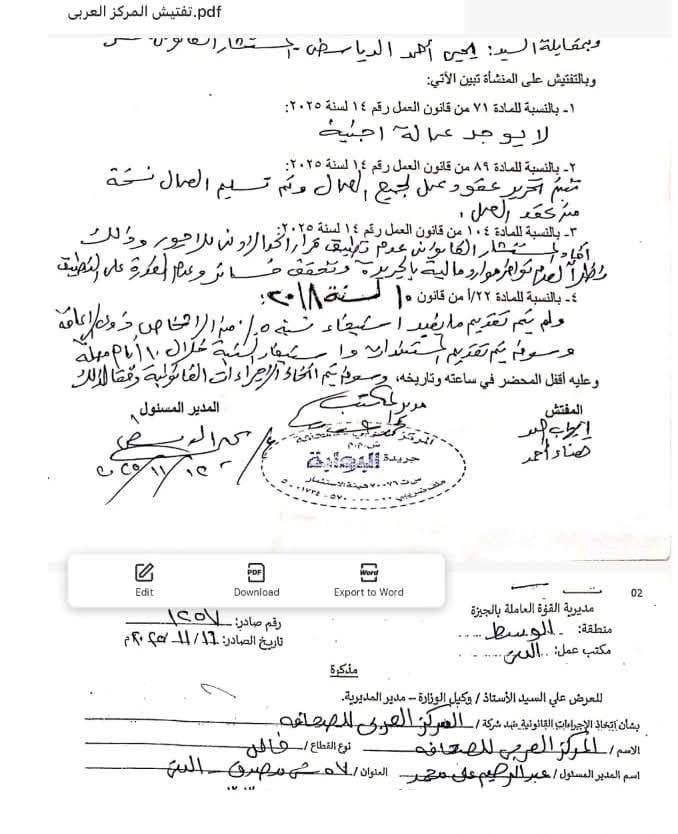 تفتيش المركز العربي.pdf
وبمقابلة السيد: يحيى أحمد الدياسطى المستشار القانونى
وبالتفتيش على المنشأة تبين الآتي:
١- بالنسبة للمادة ٧١ من قانون العمل رقم ١٤ لسنة ٢٠٢٥:
لا يوجد عمالة اجنبية
٢- بالنسبة للمادة ٨٩ من قانون العمل رقم ١٤ لسنة ٢٠٢٥:
تم تحرير عقود عمل لجميع العمال وتم تسليم العمال نسخة
من عقد العمل.
٣- بالنسبة للمادة ١٠٤ من قانون العمل رقم ١٤ لسنة ٢٠٢٥:
أفاد المستشار القانونى عدم تطبيق قرار الحد الادنى للاجور وذلك
نظراً لعدم توافر موارد مالية بالجريدة وتحقق خسائر وعدم القدرة على التطبيق
٤- بالنسبة للمادة ٢٢/أ من قانون ١٠ لسنة ٢٠١٨:
ولم يتم تقديم ما يفيد استيفاء نسبة ٥٪ من الاشخاص ذوى الإعاقة
وسوف يتم تقديم المستندات واستيفاء النسبة خلال ١٠ أيام مهلة
وعليه أقفل المحضر في ساعته وتاريخه، وسوف يتم اتخاذ الإجراءات القانونية وفقا لذلك
المفتش
مدير المكتب
المدير المسئول
إيهاب السيد
هناء أحمد
جريدة البوابة
Edit
Download
Export to Word
02
مديرية القوة العاملة بالجيزة
منطقة: الوسط
مكتب عمل:
رقم صادر: ١٢٥٧
تاريخ الصادر: ١٦/١١/٢٠٢٥م
مذكرة
للعرض علي السيد الأستاذ / وكيل الوزارة – مدير المديرية.
بشأن إتخاذ الإجراءات القانونية ضد شركة / المركز العربى للصحافه
الاسم / المركز العربى للصحافه نوع القطاع / خاص
اسم المدير المسئول / عبدالرحيم على محمد العنوان / ٥٧ ش مصدق –